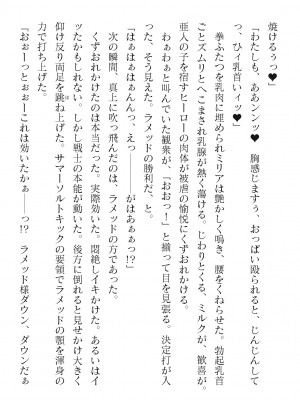 焼けるぅっ♥」
「わたしも、ああンンッ♥　胸感じますぅ、おっぱい殴られると、じんじんして
っ、ひィ乳首いィッ♥」
拳ふたつを乳肉に埋められミリアは艶かしく鳴き、腰をくねらせた。勃起乳首
ごとズムリとへこまされ乳腺が熱く蕩ける。じわりとくる、ミルクが、歓喜が。
亜人の子を宿すヒーローの肉体が被虐の愉悦にくずおれかける。
わぁわぁと叫んでいた観衆が、「おおっ！」と揃って目を見張る。決定打が入
った、そう見えた。ラメッドの勝利だ、と。
「はぁはぁはぁんんっ、えっ――がはあぁぁっ!?」
次の瞬間、真上に吹っ飛んだのは、ラメッドの方であった。
くずおれかけたのは本当だった。実際効いた。悶絶しイキかけた。あるいはイ
ッたかもしれない。しかし戦士の本能が動いた。後方に倒れると見せかけ大きく
仰け反り両足を跳ね上げた。サマーソルトキックの要領でラメッドの顎を渾身の
力で打ち上げた。
「おぉーっとぉぉーこれは効いたかぁ――っ!?　ラメッド様ダウン、ダウンだぁ